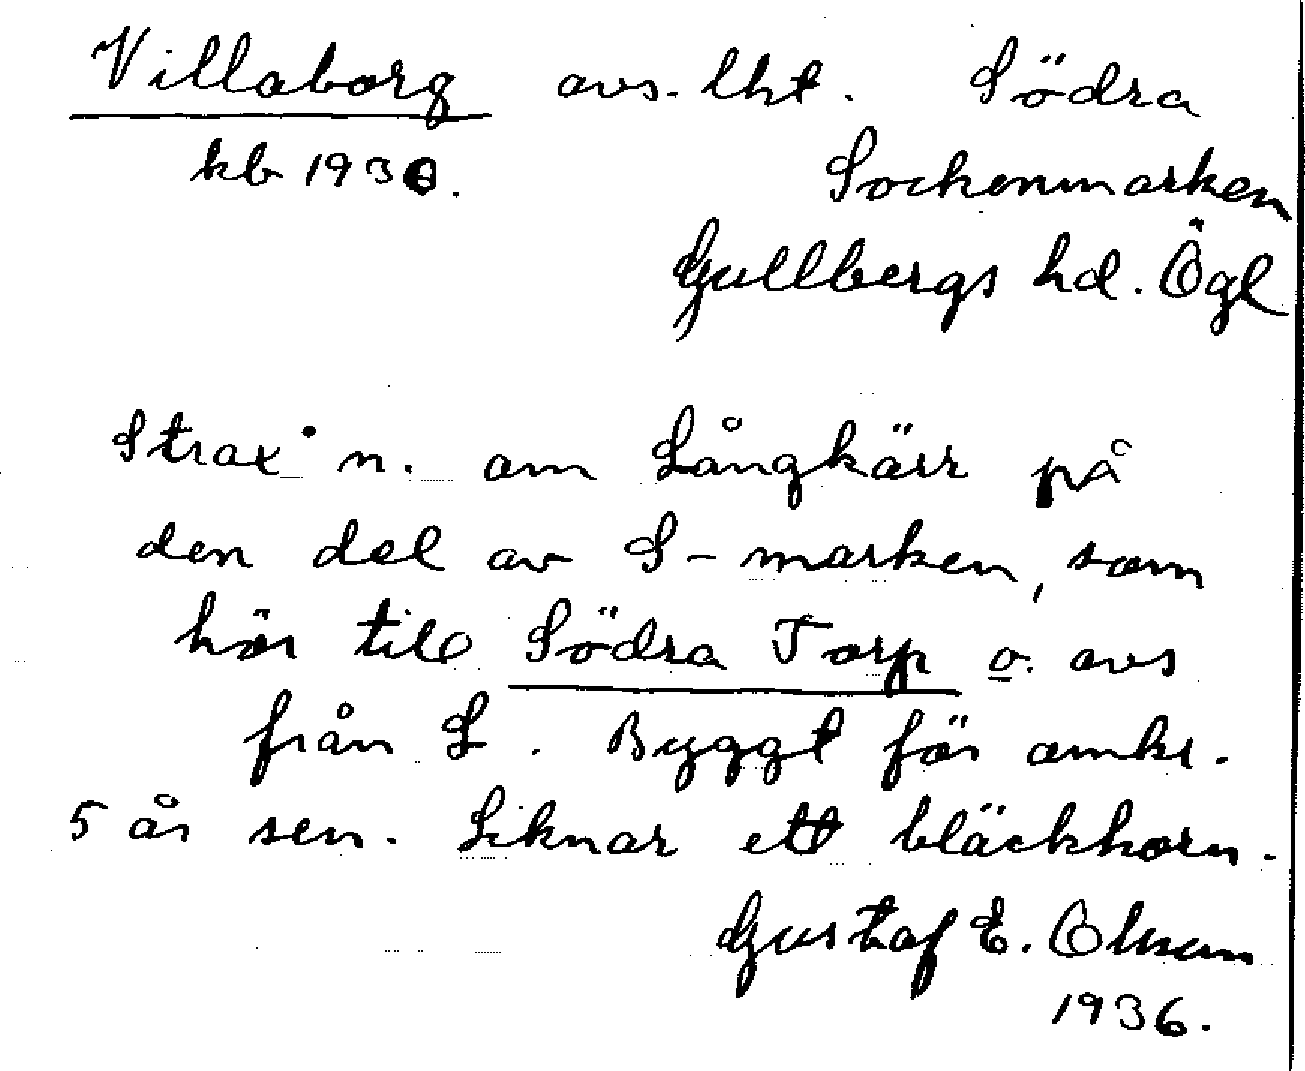 Villaborg avs. lht. Södra
kb 1930. Sockenmarken
Gullbergs hd. Ögl
Strax n. om Långkärr på
den del av S-marken, som
hör till Södra Torp o. avs
från L. Byggt för omkr.
5 år sen. Liknar ett bläckhorn.
Gustaf E. Olsson
1936.